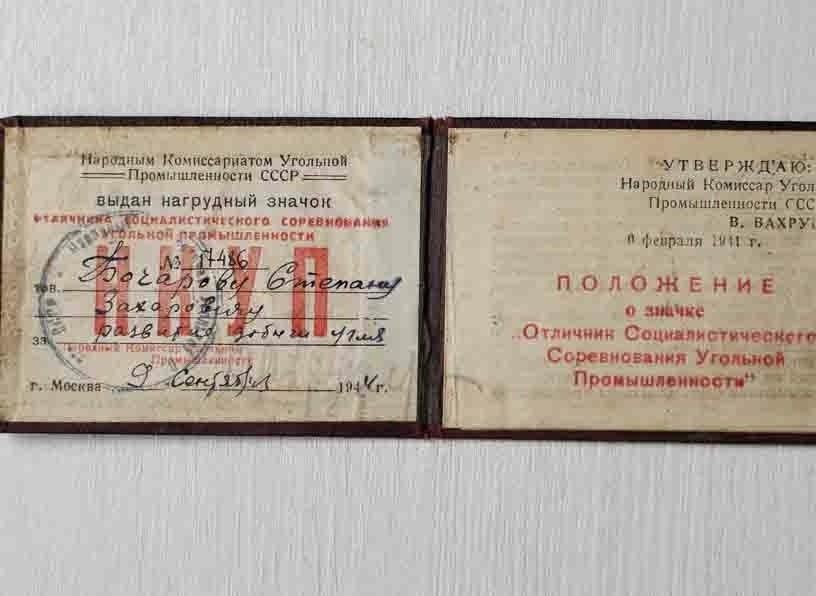 Народным Комиссариатом Угольной
Промышленности СССР
выдан нагрудный значок
ОТЛИЧНИКА СОЦИАЛИСТИЧЕСКОГО СОРЕВНОВАНИЯ
УГОЛЬНОЙ ПРОМЫШЛЕННОСТИ
№ 17486
НКУП
тов. Бочарову Степану
Захаровичу
за развитие добычи угля
Народный Комиссар Угольной
Промышленности
г. Москва 9 Сентября 1944 г.
УТВЕРЖДАЮ:
Народный Комиссар Угол
Промышленности ССС
В. ВАХРУ
6 февраля 1941 г.
ПОЛОЖЕНИЕ
о значке
„Отличник Социалистического
Соревнования Угольной
Промышленности"